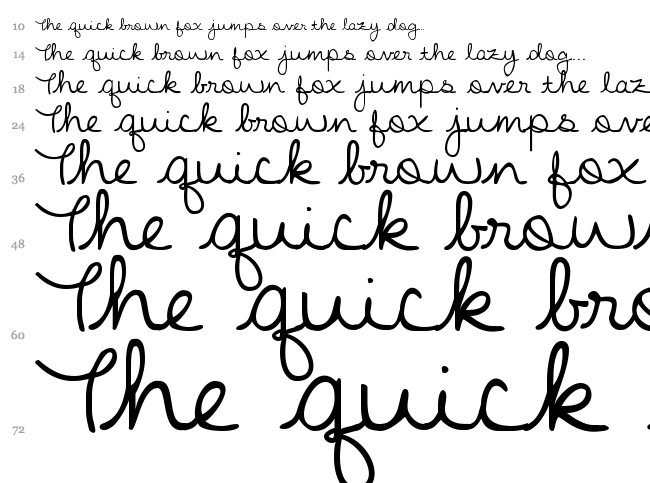 10 The quick brown fox jumps over the lazy dog...
14 The quick brown fox jumps over the lazy dog...
18 The quick brown fox jumps over the laz
24 The quick brown fox jumps ove
36 The quick brown fox
48 The quick brow
60 The quick bro
72 The quick